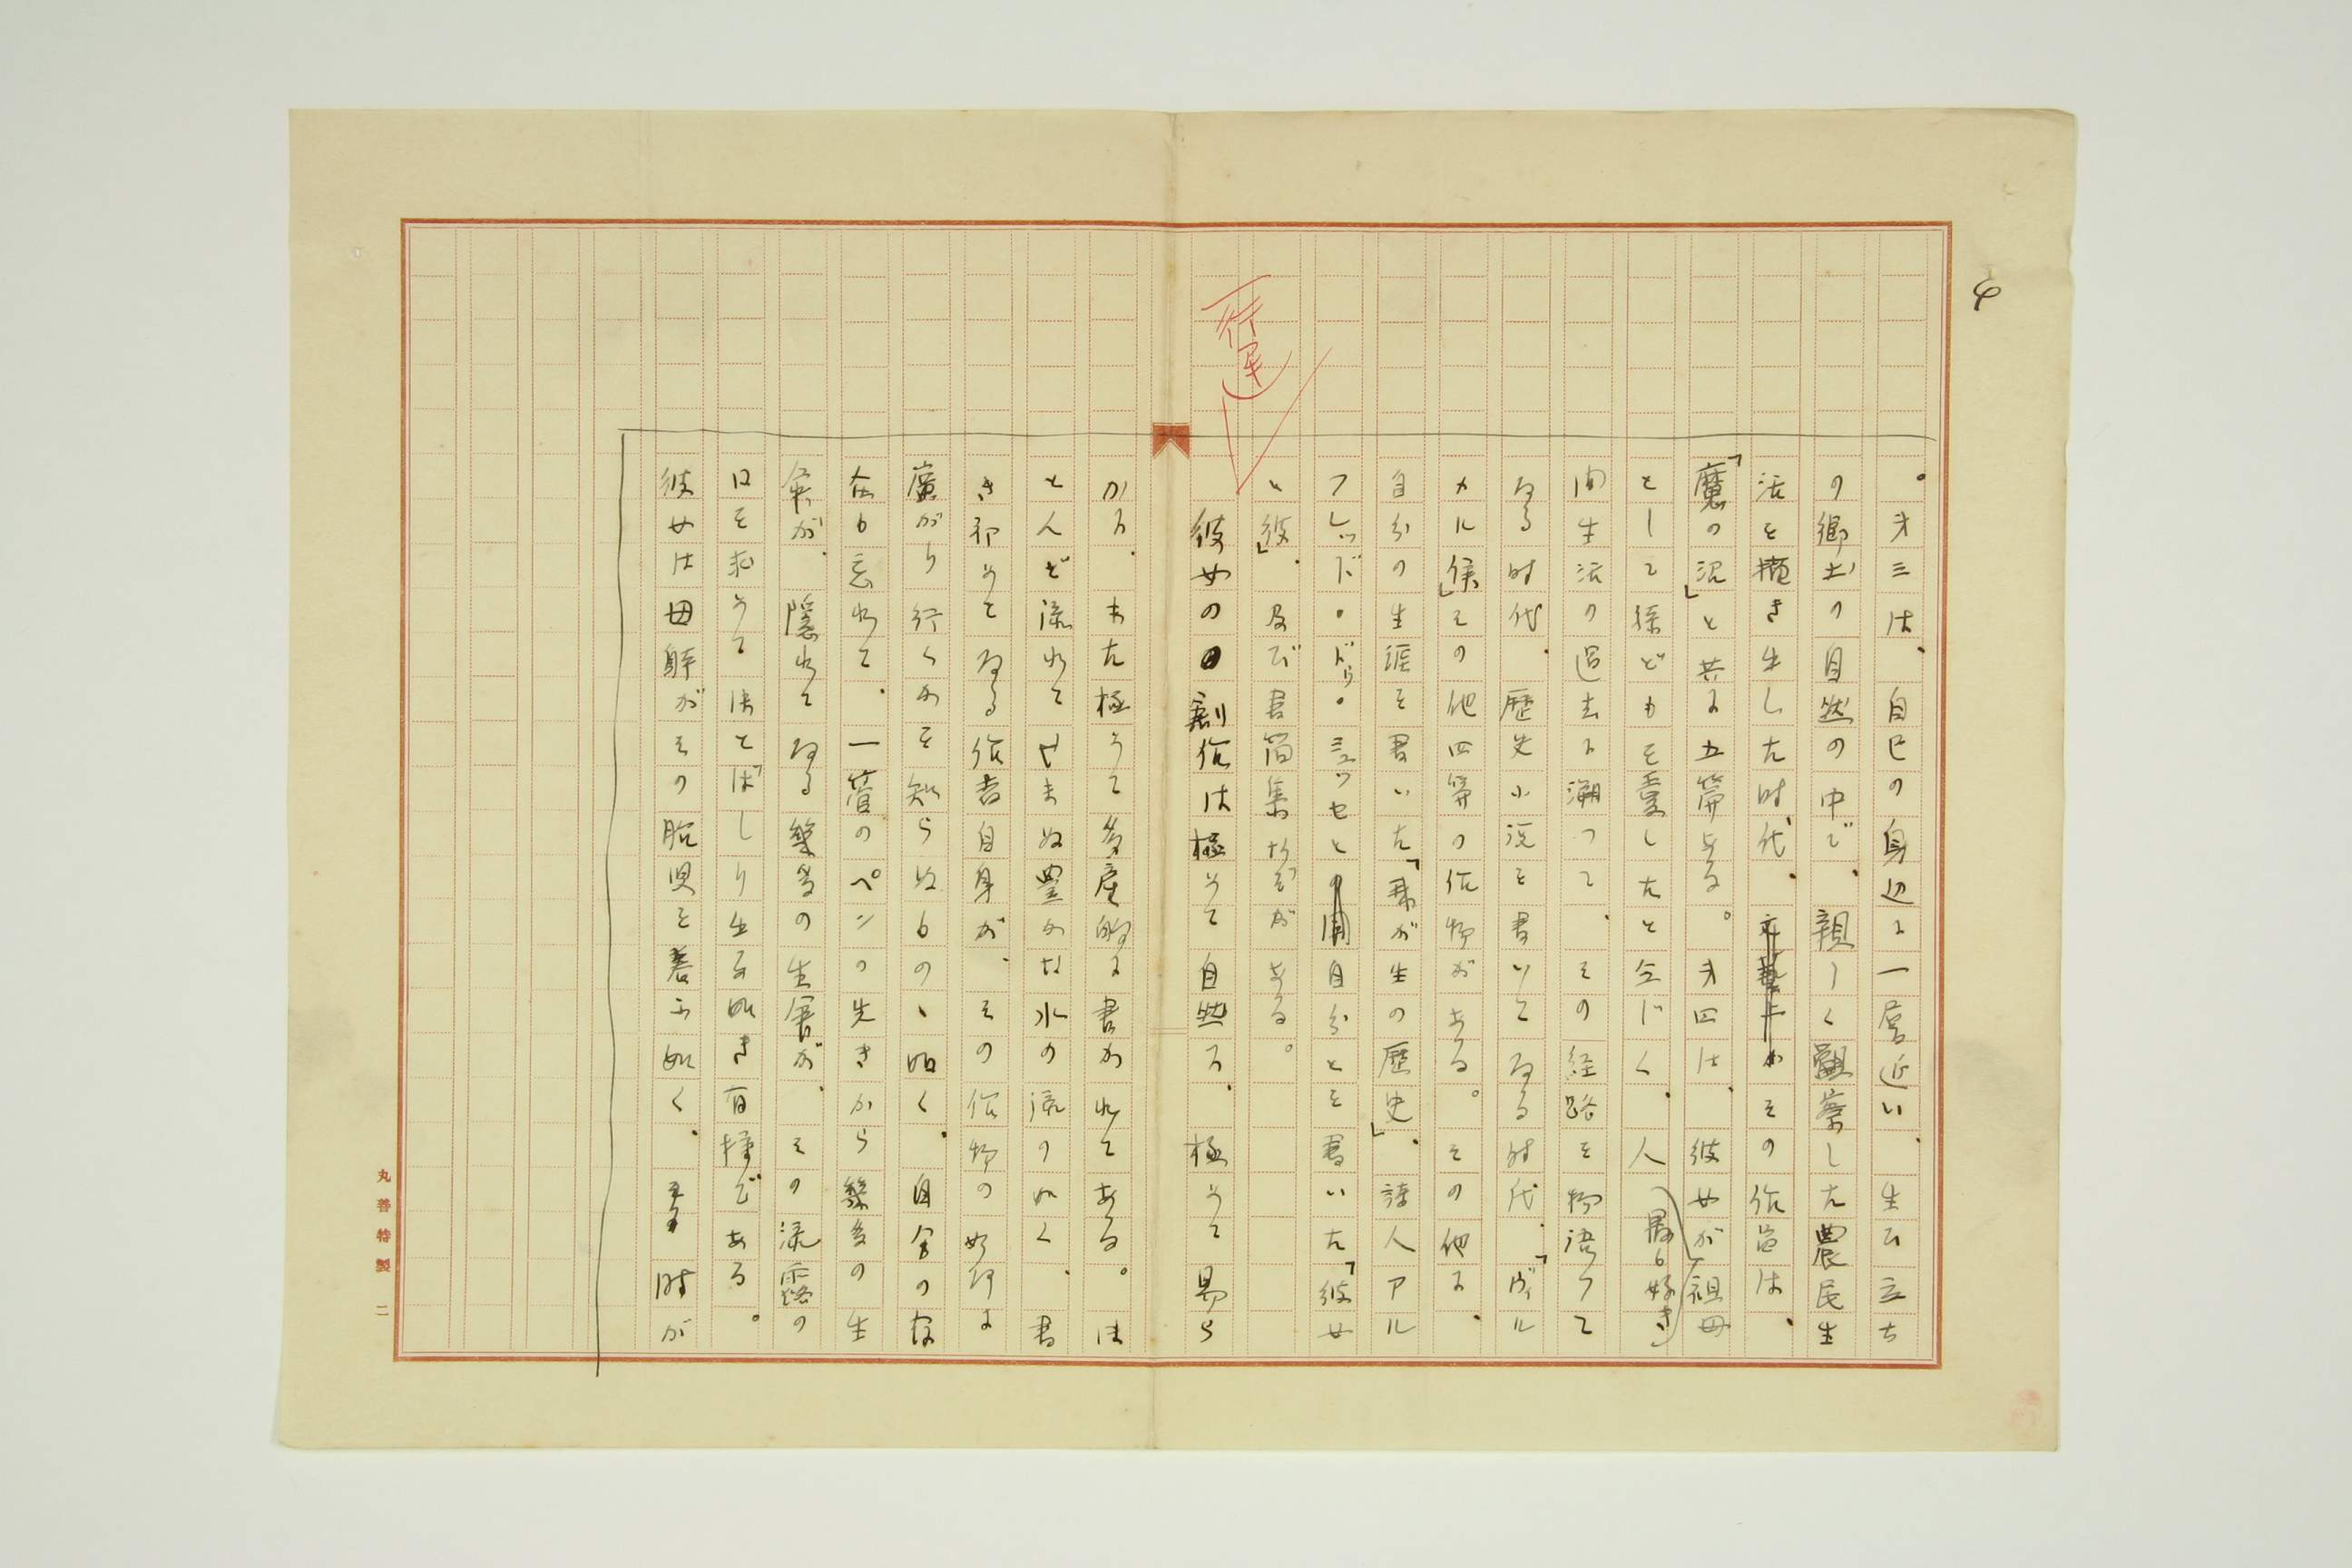 4
。才三は、自己の身辺に一層近い、生ひ立ち
の郷土の自然の中で、親しく観察した農民生
活を描き出した時代、その作品は、
「魔の沼」と共に五篇ある。才四は、彼女が祖母
として孫どもを愛したと全じく、人
(最も好き)
間生活の過去に溯つて、その経路を物語つて
ゐる時代、歴史小説を書いてゐる時代、「ヴィル
メル侯」その他四篇の作物がある。その他に、
自分の生涯を書いた「我が生の歴史」、詩人アル
フレッド・ドゥ・ミュッセと自分とを書いた「彼女
と彼」、及び書簡集などがある。
行運
彼女の創作は極めて自然に、極めて易ら
かに、また極めて多産的に書かれてある。ほ
とんど流れてやまぬ豊かな水の流の如く、書
き初めてゐる作者自身が、その作物の如何に
廣がり行くかを知らぬものゝ如く、自分の存
在も忘れて、一管のペンの先きから幾多の生
命が、隠れてゐる幾多の生命が、その流露の
口を求めてほとばしり出る如き有様である。
彼女は母躰がその胎児を養ふ如く、時が
丸善特製 二